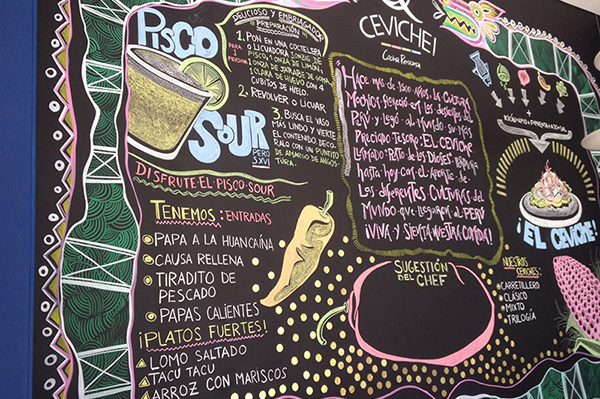 PISCO
SOUR
PERÚ
S.XVI
DELICIOSO Y EMBRIAGADOR
¡PREPARACIÓN!
PARA 1 PERSONA
1. PON EN UNA COCTELERA
O LICUADORA 3 ONZAS DE
PISCO Y 1 ONZA DE LIMÓN,
1 ONZA DE JARABE DE GOMA
1 CLARA DE HUEVO CON 4
CUBITOS DE HIELO.
2. REVOLVER O LICUAR.
3. BUSCA EL VASO
MÁS LINDO Y VIERTE
EL CONTENIDO. DECÓ-
RALO CON UN PUNTITO
DE AMARGO DE ANGOS-
TURA.
DISFRUTE EL PISCO SOUR
TENEMOS: ENTRADAS
PAPA A LA HUANCAÍNA
CAUSA RELLENA
TIRADITO DE
PESCADO
PAPAS CALIENTES
¡PLATOS FUERTES!
LOMO SALTADO
TACU TACU
ARROZ CON MARISCOS
CEVICHE!
Cocina Peruana
HACE MÁS DE 1500 AÑOS, LA CULTURA
EN LOS DESIERTOS DEL
PERÚ Y LEGÓ AL MUNDO SU MÁS
PRECIADO TESORO: EL CEVICHE
LLAMADO: DIOSES,
HASTA HOY CON EL APORTE DE
LAS DIFERENTES CULTURAS DEL
MUNDO QUE LLEGARON AL PERÚ
¡VIVA Y SIENTA NUESTRA COMIDA!
SUGESTIÓN
DEL CHEF
¡EL CEVICHE!
NUESTROS
CEVICHES:
CARRETILLERO
CLÁSICO
MIXTO
TRILOGÍA